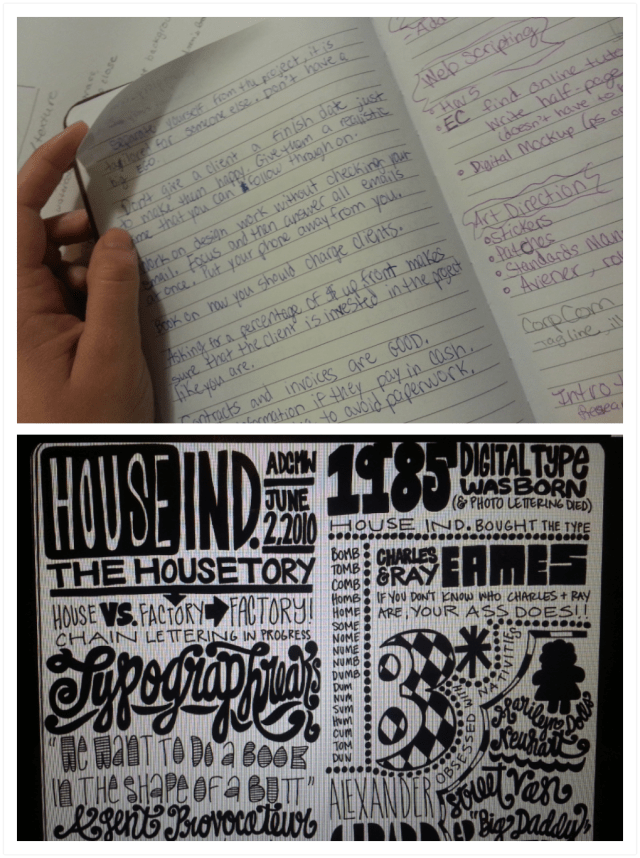 Separate yourself from the project, it is
for someone else. Don't have a
Don't give a client a finish date just
to make them happy. Give them a realistic
time that you can follow through on.
Work on design work without checking your
email. Focus and then answer all emails
at once. Put your phone away from you.
Book on how you should charge clients.
Asking for a percentage of $ up front makes
sure that the client is invested in the project
like you are.
Contracts and invoices are GOOD.
if they pay in cash.
to avoid paperwork.
Web Scripting
HW 5
EC find online
Write half-page
(doesn't have to
Digital Mockup (ps or
Art Direction
Stickers
Patches
Standards
Avener,
Corp Com
Tag line,
Intro t
HOUSE IND.
ADCMW
JUNE
2, 2010
THE HOUSETORY
HOUSE VS. FACTORY FACTORY!
CHAIN LETTERING IN PROGRESS
Typographreaks
"WE WANT TO DO A BOOK
IN THE SHAPE OF A BUTT"
Agent Provocateur
1985 DIGITAL TYPE
WAS BORN
(& PHOTO LETTERING DIED)
HOUSE IND. BOUGHT THE TYPE
BOMB
TOMB
COMB
HOMB
HOME
SOME
NOME
NUME
NUMB
DUMB
DUM
NUM
SUM
HUM
CUM
TOM
DUN
CHARLES
& RAY EAMES
IF YOU DON'T KNOW WHO CHARLES + RAY
ARE, YOUR ASS DOES!!
3
OBSESSED WITH NATIVITIES
Marilyn Dolls
Neuhart
ALEXANDER
Street Van
"Big Daddy"